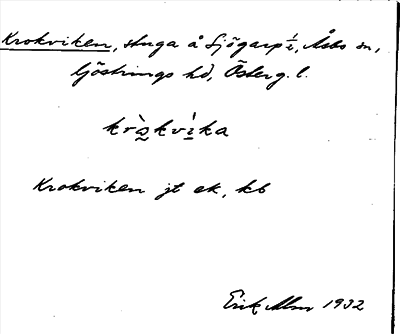 Krokviken, stuga å Sjögarp 1/2, Åsbo sn,
Göstrings hd, Österg. l.
krò̰kvì̱ka
Krokviken jt ek, kb
Erik Alm 1932